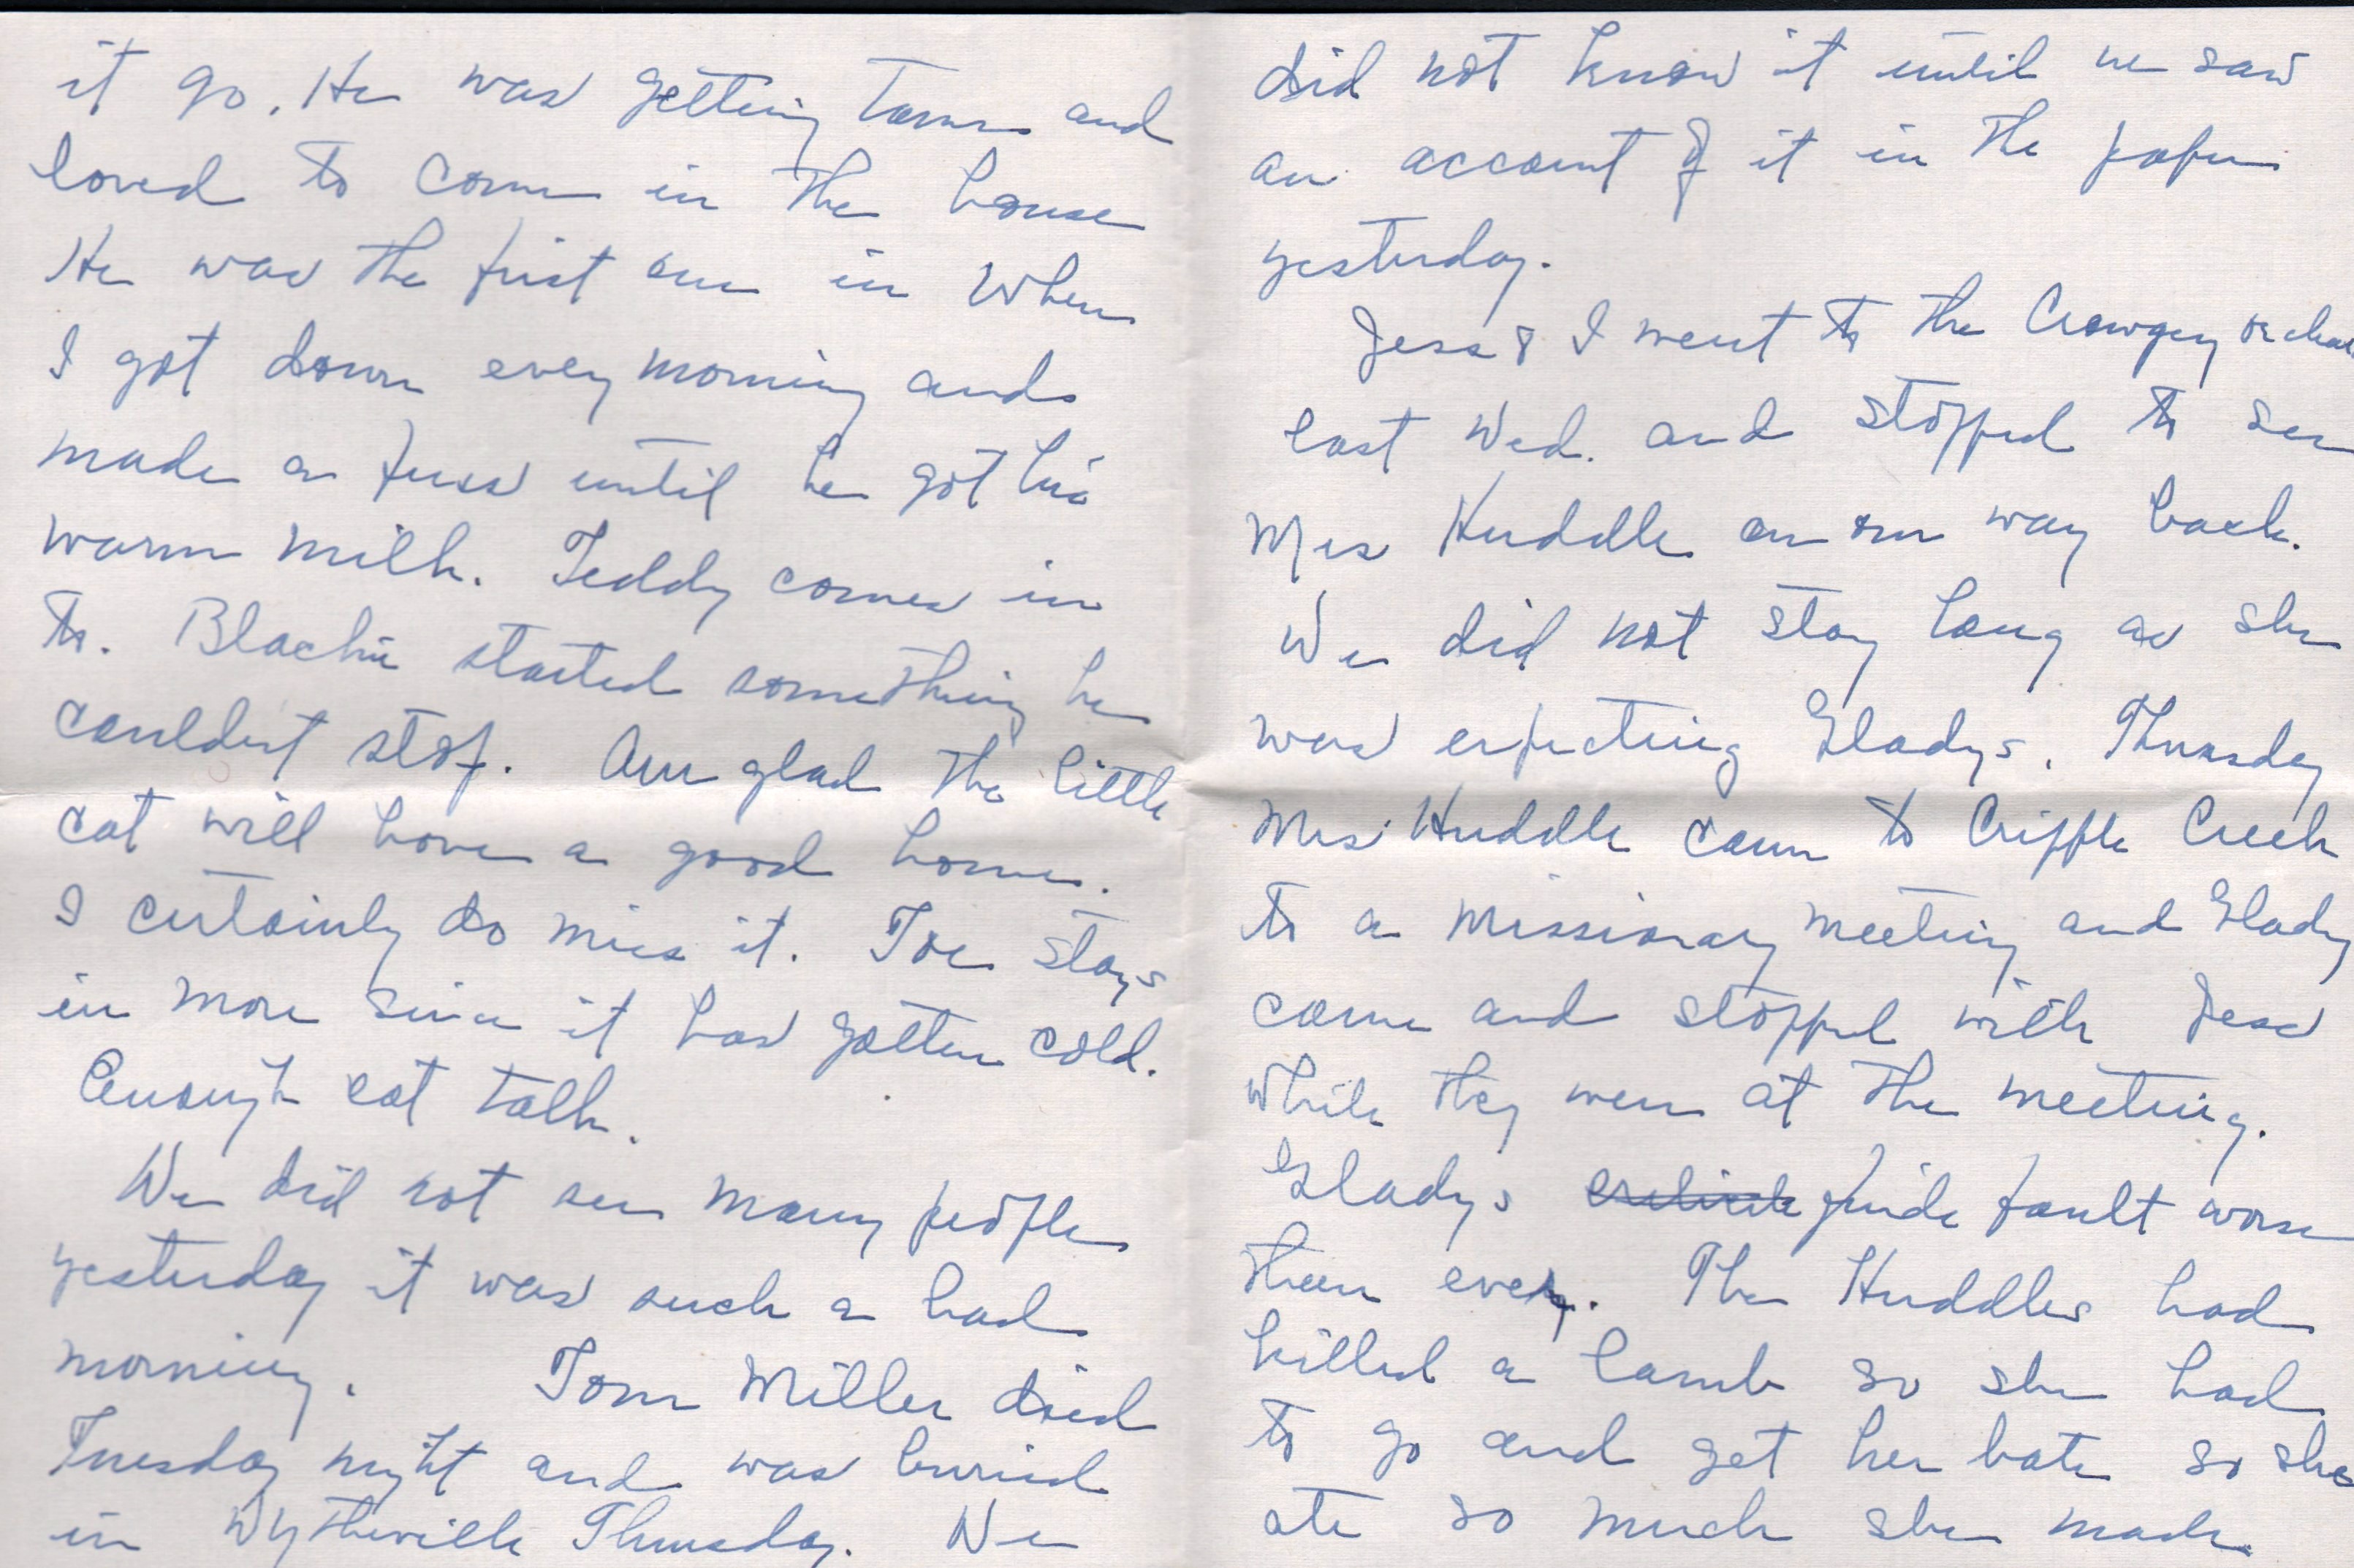 it go. He was getting tame and
loved to come in the house
He was the first one in when
I got down every morning and
made a fuss until he got his
warm milk. Teddy comes in
to. Blackie started something he
couldn't stop. Am glad the little
cat will have a good home.
I certainly do miss it. Toe stays
in more since it has gotten cold.
Enough cat talk.
We did not see many people
yesterday it was such a bad
morning. Tom Miller died
Tuesday night and was buried
in Wytheville Thursday. We
did not know it until we saw
an account of it in the paper
yesterday.
Jess & I went to the Crowgey orchard
last Wed. and stopped to see
Mrs Huddle on our way back.
We did not stay long as she
was expecting Gladys. Thursday
Mrs. Huddle came to Cripple Creek
to a missionary meeting and Gladys
came and stopped with Jess
while they were at the meeting.
Gladys finds fault worse
than ever. The Huddles had
killed a lamb so she had
to go and get her bate so she
ate so much she made